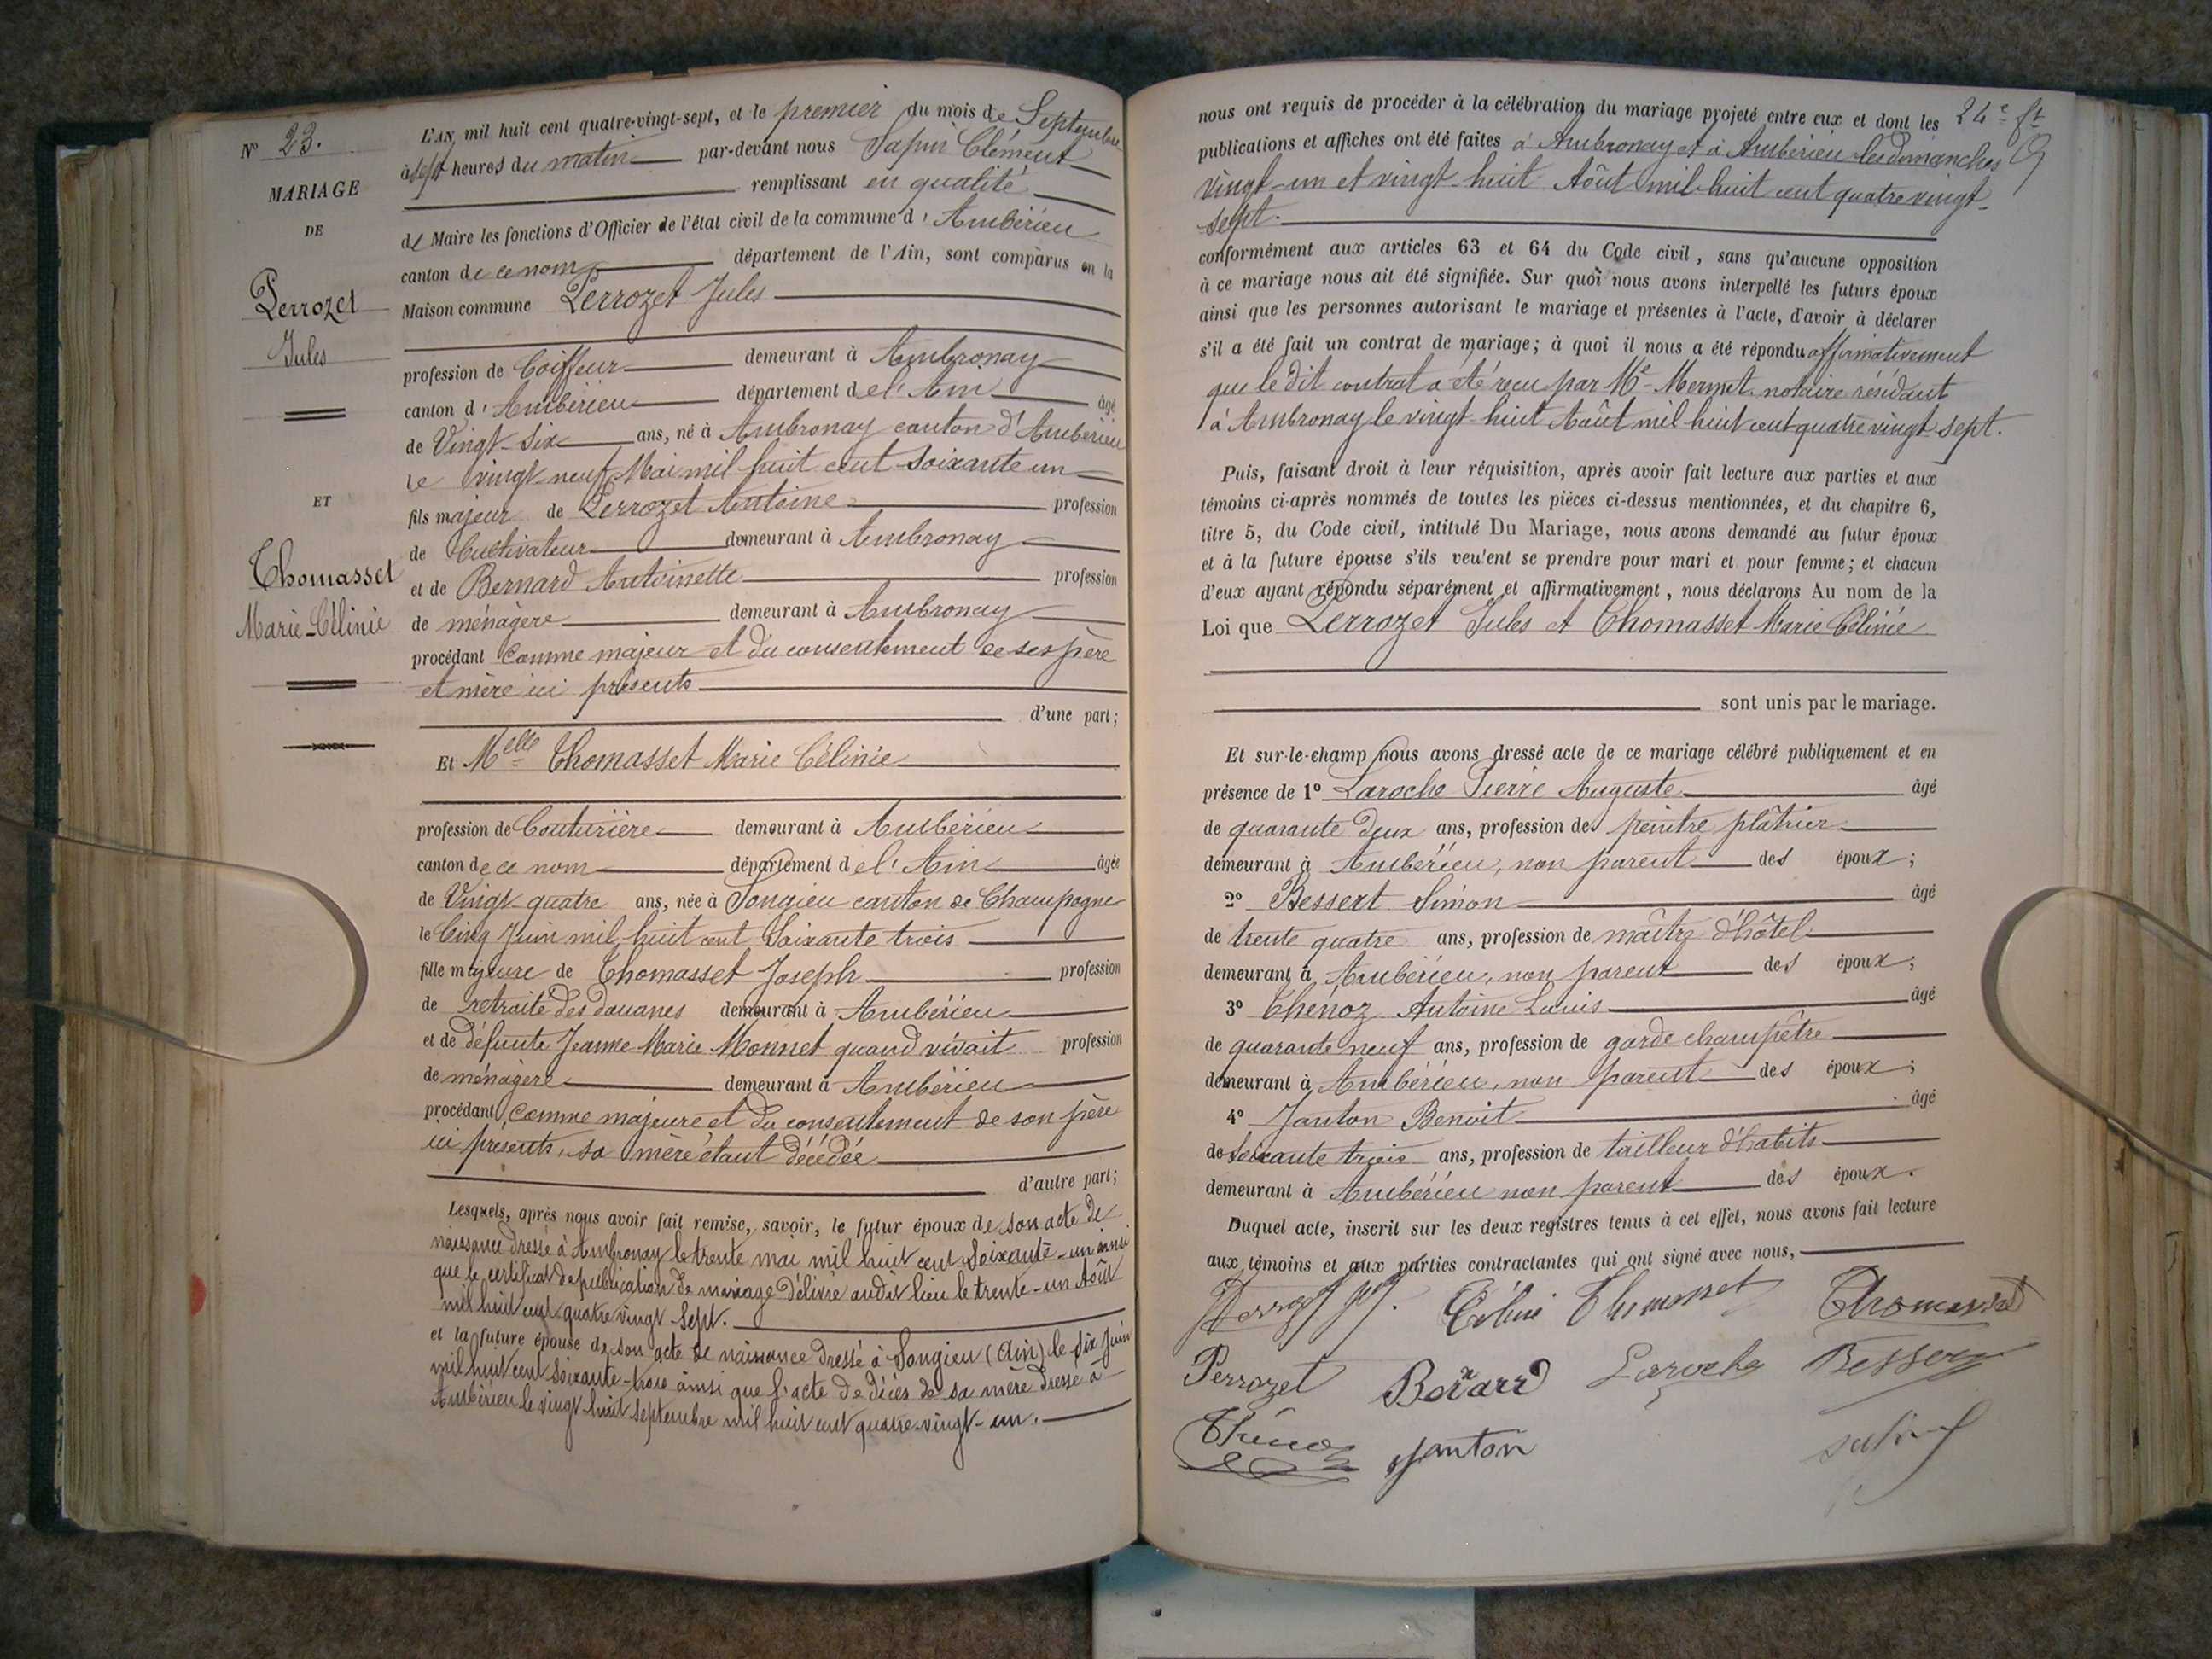 Nº 23.
MARIAGE
DE
Perrozet
Jules
ET
Thomasset
Marie-Célinie
L'AN mil huit cent quatre-vingt-sept, et le premier du mois de Septembre
à sept heures du matin par-devant nous Sapin Clément
remplissant en qualité
de Maire les fonctions d'Officier de l'état civil de la commune d'Ambérieu
canton de ce nom département de l'Ain, sont comparus en la
Maison commune Perrozet Jules
profession de Coiffeur demeurant à Ambronay
canton d'Ambérieu département de l'Ain âgé
de Vingt-six ans, né à Ambronay canton d'Ambérieu
le vingt-neuf Mai mil huit cent soixante un
fils majeur de Perrozet Antoine profession
de Cultivateur demeurant à Ambronay
et de Bernard Antoinette profession
de ménagère demeurant à Ambronay
procédant comme majeur et du consentement de ses père
et mère ici présents
d'une part;
Et Melle Thomasset Marie Célinie
profession de Couturière demeurant à Ambérieu
canton de ce nom département de l'Ain âgée
de Vingt quatre ans, née à Songieu canton de Champagne
le Cinq Juin mil huit cent soixante trois
fille majeure de Thomasset Joseph profession
de retraité des douanes demeurant à Ambérieu
et de défunte Jeanne Marie Monnet quand vivait profession
de ménagère demeurant à Ambérieu
procédant comme majeure et du consentement de son père
ici présents, sa mère étant décédée
d'autre part;
Lesquels, après nous avoir fait remise, savoir, le futur époux de son acte de
naissance dressé à Ambronay le trente mai mil huit cent soixante-un ainsi
que le certificat de publication de mariage délivré audit lieu le trente-un Août
mil huit cent quatre vingt sept.
et la future épouse de son acte de naissance dressé à Songieu (Ain) le six juin
mil huit cent soixante-trois ainsi que l'acte de décès de sa mère dressé à
Ambérieu le vingt huit septembre mil huit cent quatre-vingt-un.
24e ft
nous ont requis de procéder à la célébration du mariage projeté entre eux et dont les
publications et affiches ont été faites à Ambronay et à Ambérieu les dimanches
vingt-un et vingt-huit Août mil huit cent quatre vingt-
sept.
conformément aux articles 63 et 64 du Code civil, sans qu'aucune opposition
à ce mariage nous ait été signifiée. Sur quoi nous avons interpellé les futurs époux
ainsi que les personnes autorisant le mariage et présentes à l'acte, d'avoir à déclarer
s'il a été fait un contrat de mariage; à quoi il nous a été répondu affirmativement
que le dit contrat a été reçu par Me Mermet notaire résidant
à Ambronay le vingt-huit Août mil huit cent quatre vingt-sept.
Puis, faisant droit à leur réquisition, après avoir fait lecture aux parties et aux
témoins ci-après nommés de toutes les pièces ci-dessus mentionnées, et du chapitre 6,
titre 5, du Code civil, intitulé Du Mariage, nous avons demandé au futur époux
et à la future épouse s'ils veulent se prendre pour mari et pour femme; et chacun
d'eux ayant répondu séparément et affirmativement, nous déclarons Au nom de la
Loi que Perrozet Jules et Thomasset Marie Célinie
sont unis par le mariage.
Et sur-le-champ nous avons dressé acte de ce mariage célébré publiquement et en
présence de 1º Laroche Pierre Auguste âgé
de quarante deux ans, profession de peintre plâtrier
demeurant à Ambérieu, non parent des époux;
2º Bessert Simon âgé
de trente quatre ans, profession de maître d'hôtel
demeurant à Ambérieu, non parent des époux;
3º Chénoz Antoine Louis âgé
de quarante neuf ans, profession de garde champêtre
demeurant à Ambérieu, non parent des époux;
4º Janton Benoit âgé
de soixante trois ans, profession de tailleur d'habits
demeurant à Ambérieu non parent des époux.
Duquel acte, inscrit sur les deux registres tenus à cet effet, nous avons fait lecture
aux témoins et aux parties contractantes qui ont signé avec nous,
Célinie Thomasset Thomasset
Perrozet Laroche
Janton